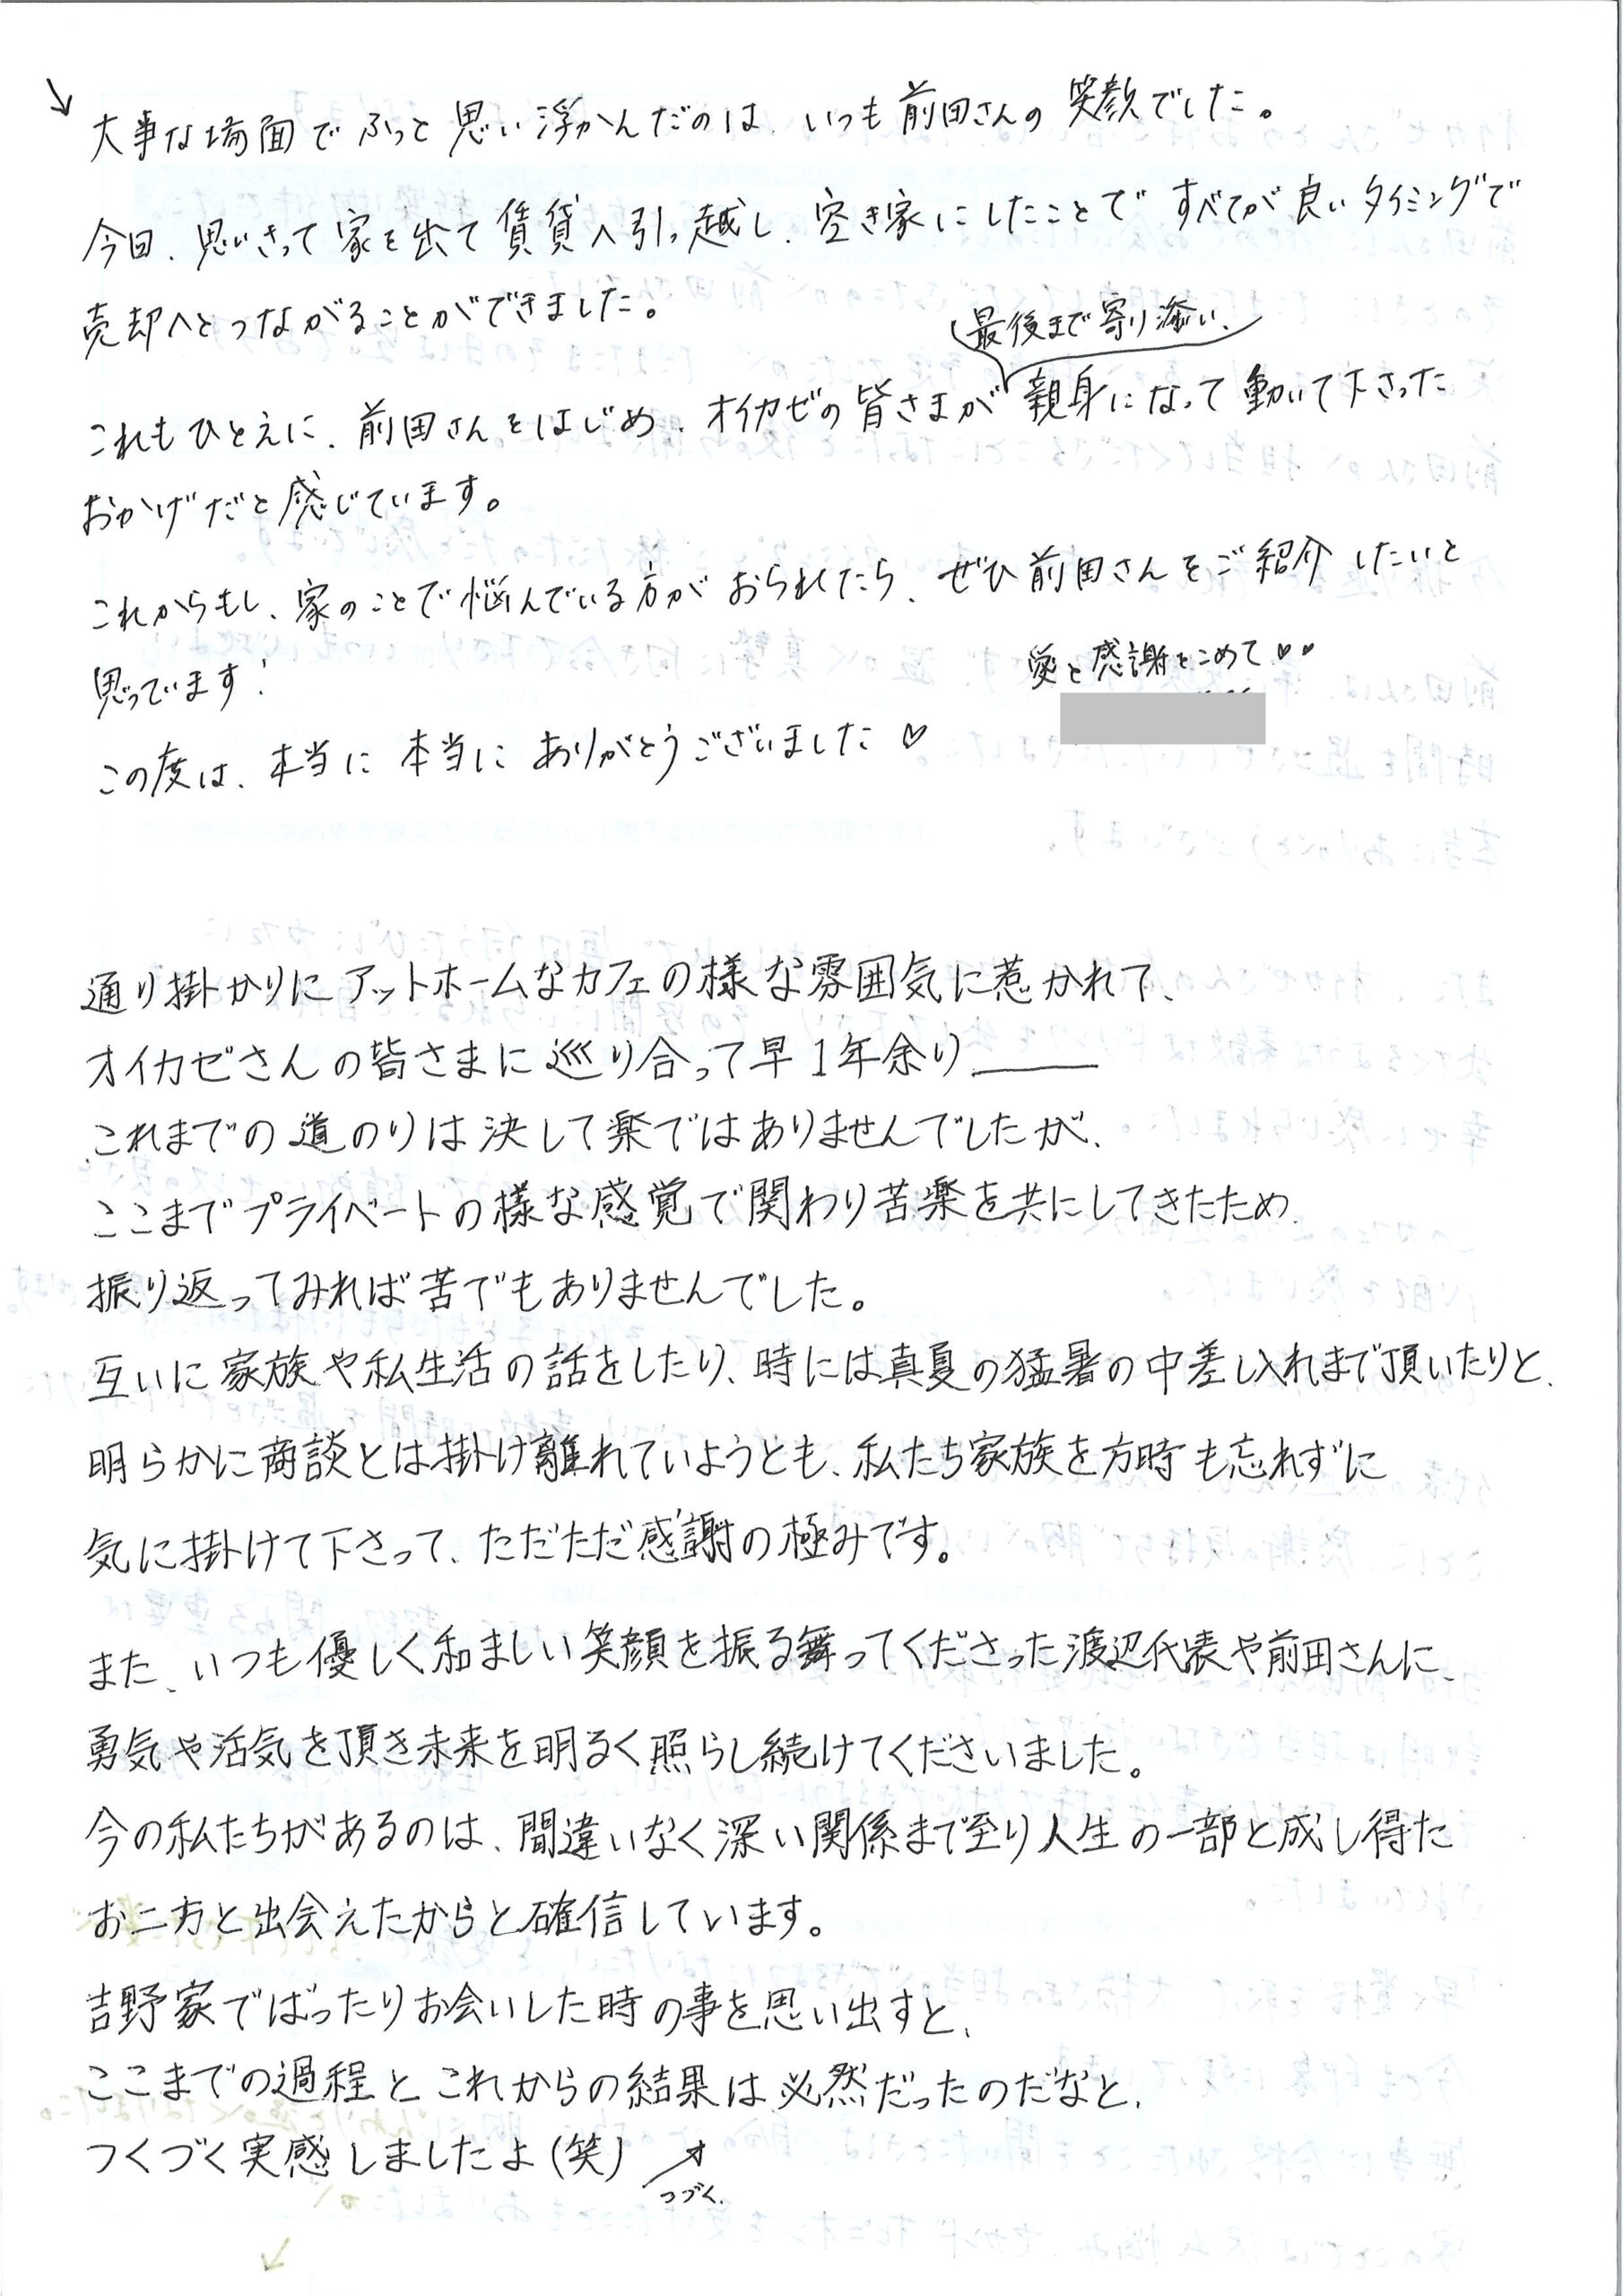 ↘大事な場面でふっと思い浮かんだのは、いつも前田さんの笑顔でした。
今回、思いきって家を出て賃貸へ引っ越し、空き家にしたことですべてが良いタイミングで
売却へとつながることができました。
最後まで寄り添い、
これもひとえに、前田さんをはじめ、オイカゼの皆さまが親身になって動いて下さった
おかげだと感じています。
これからもし、家のことで悩んでいる方がおられたら、ぜひ前田さんをご紹介したいと
思っています!
愛と感謝をこめて♥♥
この度は、本当に本当にありがとうございました♡
通り掛かりにアットホームなカフェの様な雰囲気に惹かれて、
オイカゼさんの皆さまに巡り合って早1年余り――
これまでの道のりは決して楽ではありませんでしたが、
ここまでプライベートの様な感覚で関わり苦楽を共にしてきたため、
振り返ってみれば苦でもありませんでした。
互いに家族や私生活の話をしたり、時には真夏の猛暑の中差し入れまで頂いたりと、
明らかに商談とは掛け離れていようとも、私たち家族を方時も忘れずに
気に掛けて下さって、ただただ感謝の極みです。
また、いつも優しく和ましい笑顔を振る舞ってくださった渡辺代表や前田さんに、
勇気や活気を頂き未来を明るく照らし続けてくださいました。
今の私たちがあるのは、間違いなく深い関係まで至り人生の一部と成し得た
お二方と出会えたからと確信しています。
吉野家でばったりお会いした時の事を思い出すと、
ここまでの過程とこれからの結果は必然だったのだなと、
つくづく実感しましたよ(笑)
つづく.